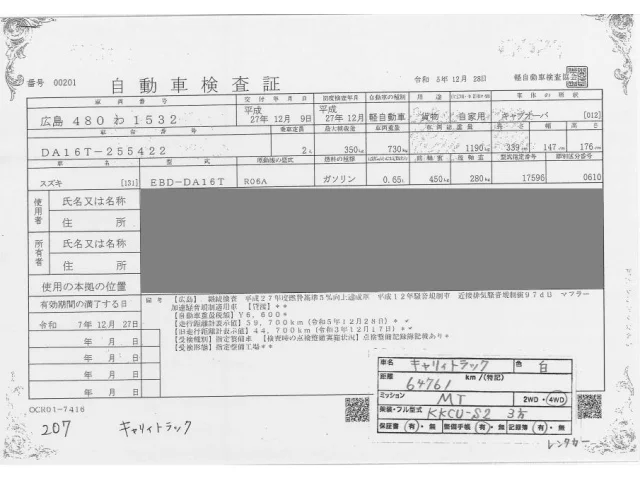 番号 00201 自動車検査証 令和 5年12月28日 軽自動車検査協会
車両番号 交付年月日 初度検査年月 自動車の種別 用途 車体の形状
広島 480 わ 1532 平成 27年12月 9日 平成 27年12月 軽自動車 貨物 自家用 キャブオーバ [012]
車台番号 乗車定員 最大積載量 車両重量 車両総重量 長さ 幅 高さ
DA16T-255422 2人 350kg 730kg 1190kg 339cm 147cm 176cm
車名 型式 原動機の型式 燃料の種類 前軸重 後軸重 型式指定番号 類別区分番号
スズキ [131] EBD-DA16T R06A ガソリン 0.65L 450kg 280kg 17596 0610
使用者 氏名又は名称
住所
所有者 氏名又は名称
住所
使用の本拠の位置
有効期間の満了する日
令和 7年12月27日
年 月 日
年 月 日
年 月 日
年 月 日
備考 【広島】 継続検査 平成27年度燃費基準5%向上達成車 平成12年騒音規制車 近接排気騒音規制値97dB マフラー
加速騒音規制適用車 【管理】**
【自動車重量税額】¥6,600*
【走行距離計表示値】39,700km(令和5年12月28日)**
【旧走行距離計表示値】44,700km(令和3年12月17日)**
【受検種別】指定整備車 【検査時の点検整備実施状況】点検整備記録簿記載あり*
【受検形態】指定整備工場**
車名 キャリィトラック 色 白
距離 64761 km/(特記)
ミッション MT 2WD・4WD
架装・フル型式 KKCU-S2 3方
保証書 有・無 整備手帳 有・無 記録簿 有・無
OCR01-7416
207 キャリィトラック
レンタカー